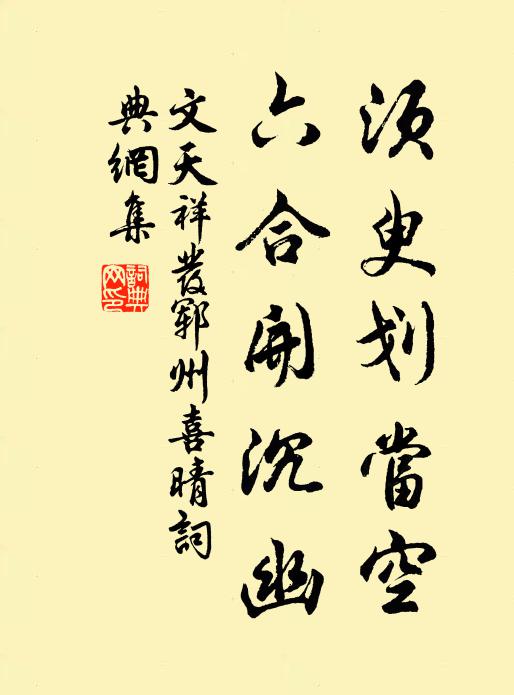 須叟划當空
六合開沉幽
文天祥發鄆州喜晴詞
典網集
詞典网印